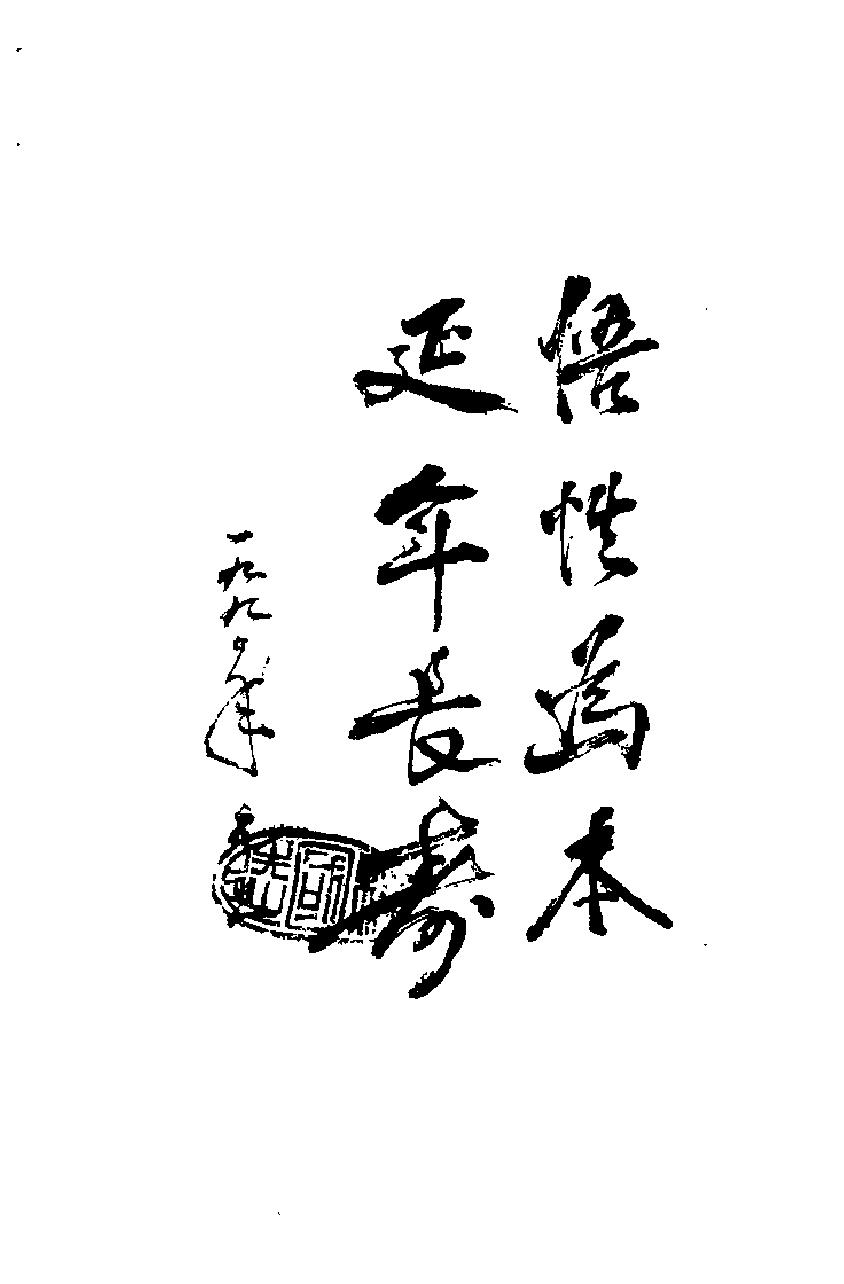 悟性為本
延年長壽
一九九〇年